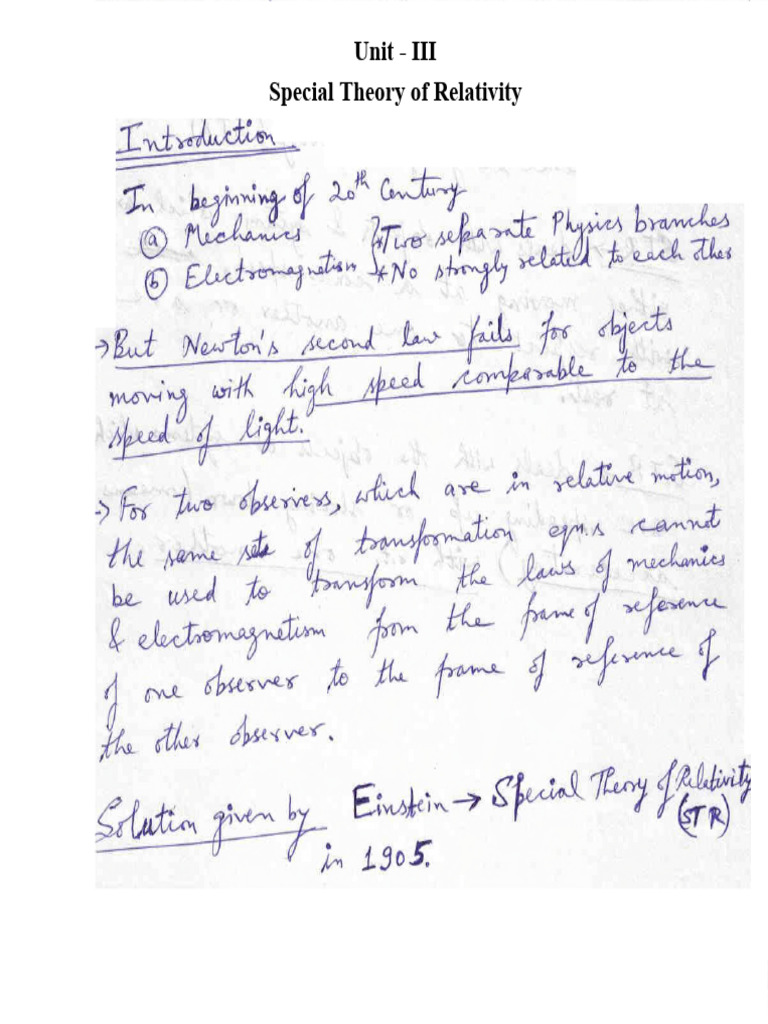 Unit - III
Special Theory of Relativity
Introduction.
In beginning of 20th Century
(a) Mechanics } * Two separate Physics branches
(b) Electromagnetism } * No strongly related to each other
→ But Newton's second law fails for objects
moving with high speed comparable to the
speed of light.
→ For two observers, which are in relative motion,
the same sets of transformation eqn.s cannot
be used to transform the laws of mechanics
& electromagnetism from the frame of reference
of one observer to the frame of reference of
the other observer.
Solution given by Einstein → Special Theory of Relativity
(STR)
in 1905.